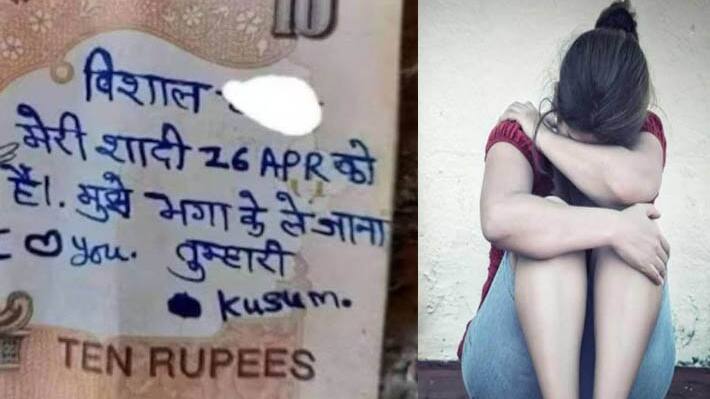 10
विशाल
मेरी शादी 26 APR को
है। मुझे भगा के ले जाना
I ♡ you. तुम्हारी
Kusum.
TEN RUPEES